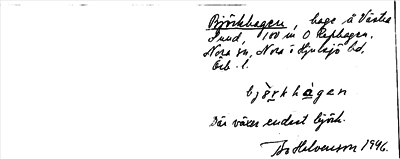 Björkhagen, hage å Västra
Sund, 100 m O Rephagen,
Nora sn, Nora o Hjulsjö bd,
Örb. l.
bjö̀rkhàgen
Där växer endast björk.
Bo Helvenson 1946.